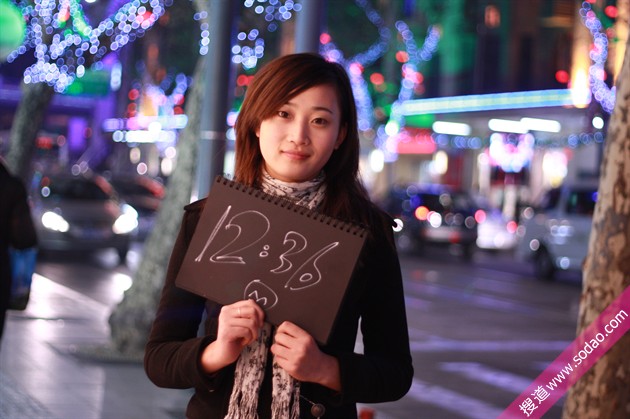 12:36
m
搜道 www.sodao.com